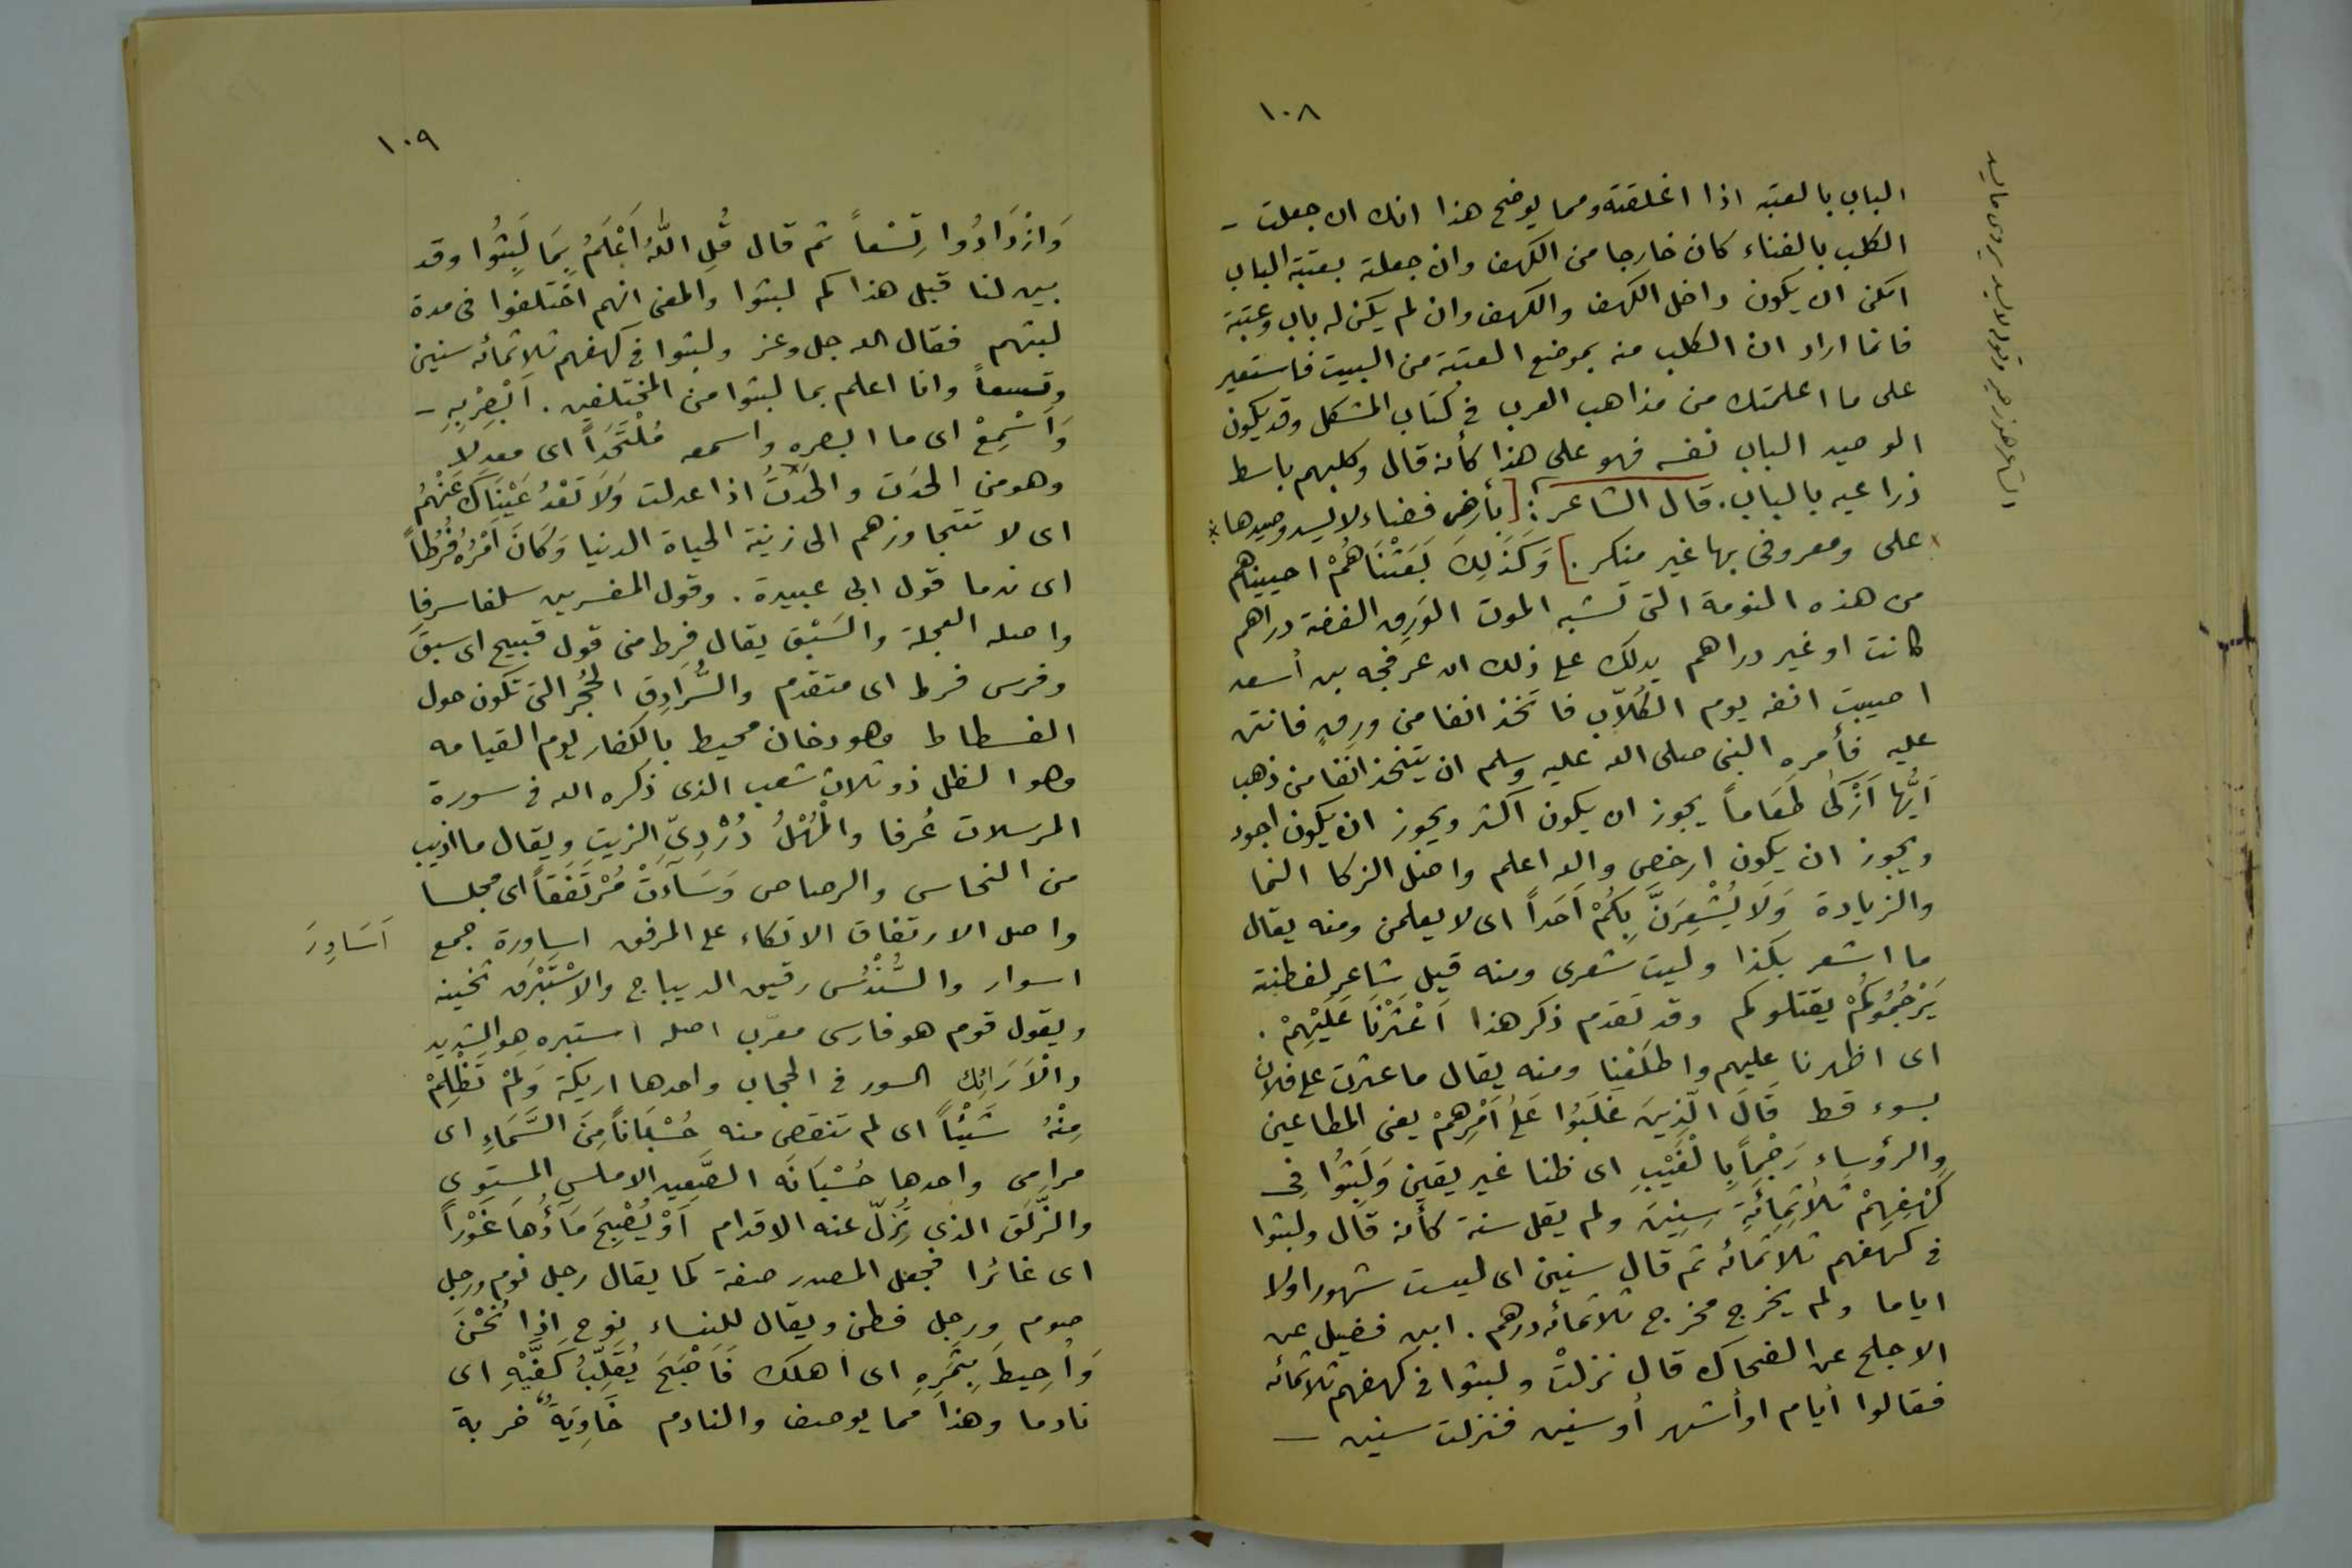 ١٠٨
الباب بالعتبه اذا اغلقته ومما يوضح هذا انك ان جعلت -
الكلب بالفناء كان خارجا من الكهف وان جعلته بعتبة الباب
امكن ان يكون داخل الكهف والكهف وان لم يكن له باب وعتبة
فانما اراد ان الكلب منه بموضع العتبة من البيت فاستعير
على ما اعلمتك من مذاهب العرب فى كتاب المشكل وقد يكون
الوصيد الباب نفسه فهو على هذا كأنه قال وكلبهم باسط
ذراعيه بالباب. قال الشاعر: [بأرض فضاء لا يسد وصيدها *
على ومعروفى بها غير منكر.] وَكَذَلِكَ بَعَثْنَاهُمْ احييناهم
من هذه النومة التى تشبه الموت الوَرِق الفضة دراهم
كانت او غير دراهم يدلك على ذلك ان عرفجه بن أسعد
اصيبت انفه يوم الكُلاّب فاتخذ انفا من ورِقٍ فانتن
عليه فأمره النبى صلى الله عليه وسلم ان يتخذ انفا من ذهب
اَيُّهَا اَزْكَىٰ طَعَاماً يجوز ان يكون اكثر ويجوز ان يكون اجود
ويجوز ان يكون ارخص والله اعلم واصل الزكا النما
والزيادة وَلَا يُشْعِرَنَّ بِكُمْ اَحَداً اى لا يعلمن ومنه يقال
ما اشعر بكذا وليت شعرى ومنه قيل شاعر لفطنته
يَرْجُمُوكُمْ يقتلوكم وقد تقدم ذكر هذا اَعْثَرْنَا عَلَيْهِمْ .
اى اظهرنا عليهم واطلَعْنا ومنه يقال ما عثرت على فلان
بسوء قط قَالَ الَّذِينَ غَلَبُوا عَلَىٰ اَمْرِهِمْ يعنى المطاعين
والرؤساء رَجْماً بِالْغَيْبِ اى ظنا غير يقين وَلَبِثُوا فِى
كَهْفِهِمْ ثَلَاثَمِائَةٍ سِنِينَ ولم يقل سنة كأنه قال ولبثوا
فى كهفهم ثلاثمائه ثم قال سنين اى ليست شهورا ولا
اياما ولم يخرج مخرج ثلاثمائه درهم . ابن فضيل عن
الاجلح عن الضحاك قال نزلتْ ولبثوا فى كهفهم ثلاثمائه
فقالوا أيام او أشهر أو سنين فنزلت سنين —
١٠٩
وَازْدَادُوا تِسْعاً ثم قال قُلِ اللّٰهُ اَعْلَمُ بِمَا لَبِثُوا وقد
بين لنا قبل هذا كم لبثوا والمعنى انهم اختلفوا فى مدة
لبثهم فقال الله جل وعز ولبثوا فى كهفهم ثلاثمائه سنين
وتسعاً وانا اعلم بما لبثوا من المختلفين . اَبْصِرْ بِهِ -
وَاَسْمِعْ اى ما ابصره واسمعه مُلْتَحَداً اى معدلا
وهو من الحَدت والحَدتُ اذا عدلت وَلَا تَعْدُ عَيْنَاكَ عَنْهُمْ
اى لا تتجاوزهم الى زينة الحياة الدنيا وَكَانَ اَمْرُهُ فُرُطاً
اى ندما قول ابى عبيدة . وقول المفسرين سلفا سرفا
واصله العجلة والسَبْق يقال فرط منى قول قبيح اى سبق
وفرس فرط اى متقدم والسُّرَادِق الحُجُر التى تكون حول
الفسطاط وهو دخان محيط بالكفار يوم القيامه
وهو الظل ذو ثلاث شعب الذى ذكره الله فى سورة
المرسلات عُرفا والْمُهْلُ دُرْدِىّ الزيت ويقال ما اذيب
من النحاس والرصاص وَسَاءَتْ مُرْتَفَقاً اى مجلسا
واصل الارتفاق الاتكاء على المرفق اساورة جمع
اَسَاوِرَ
اسوار والسُّنْدُس رقيق الديباج والاسْتَبْرَق ثخينه
ويقول قوم هو فارسى معرّب اصله استبره هو الشديد
والْاَرَائِك السرر فى الحجاب واحدها اريكة وَلَمْ تَظْلِمْ
مِنْهُ شَيْئاً اى لم تنقص منه حُسْبَاناً مِنَ السَّمَاءِ اى
مرامى واحدها حُسْبَانَه الصَّعِيد الاملس المستوى
والزَّلَق الذى تَزِلّ عنه الاقدام اَوْ يُصْبِحَ مَاؤُهَا غَوْراً
اى غائرا فجعل المصدر صفة كما يقال رجل نوم ورجل
صوم ورجل فطن ويقال للنساء نوح اذا نُحْنَ
وَاُحِيطَ بِثَمَرِهِ اى أهلك فَاَصْبَحَ يُقَلِّبُ كَفَّيْهِ اى
نادما وهذا مما يوصف والنادم خَاوِيَةٌ خربة